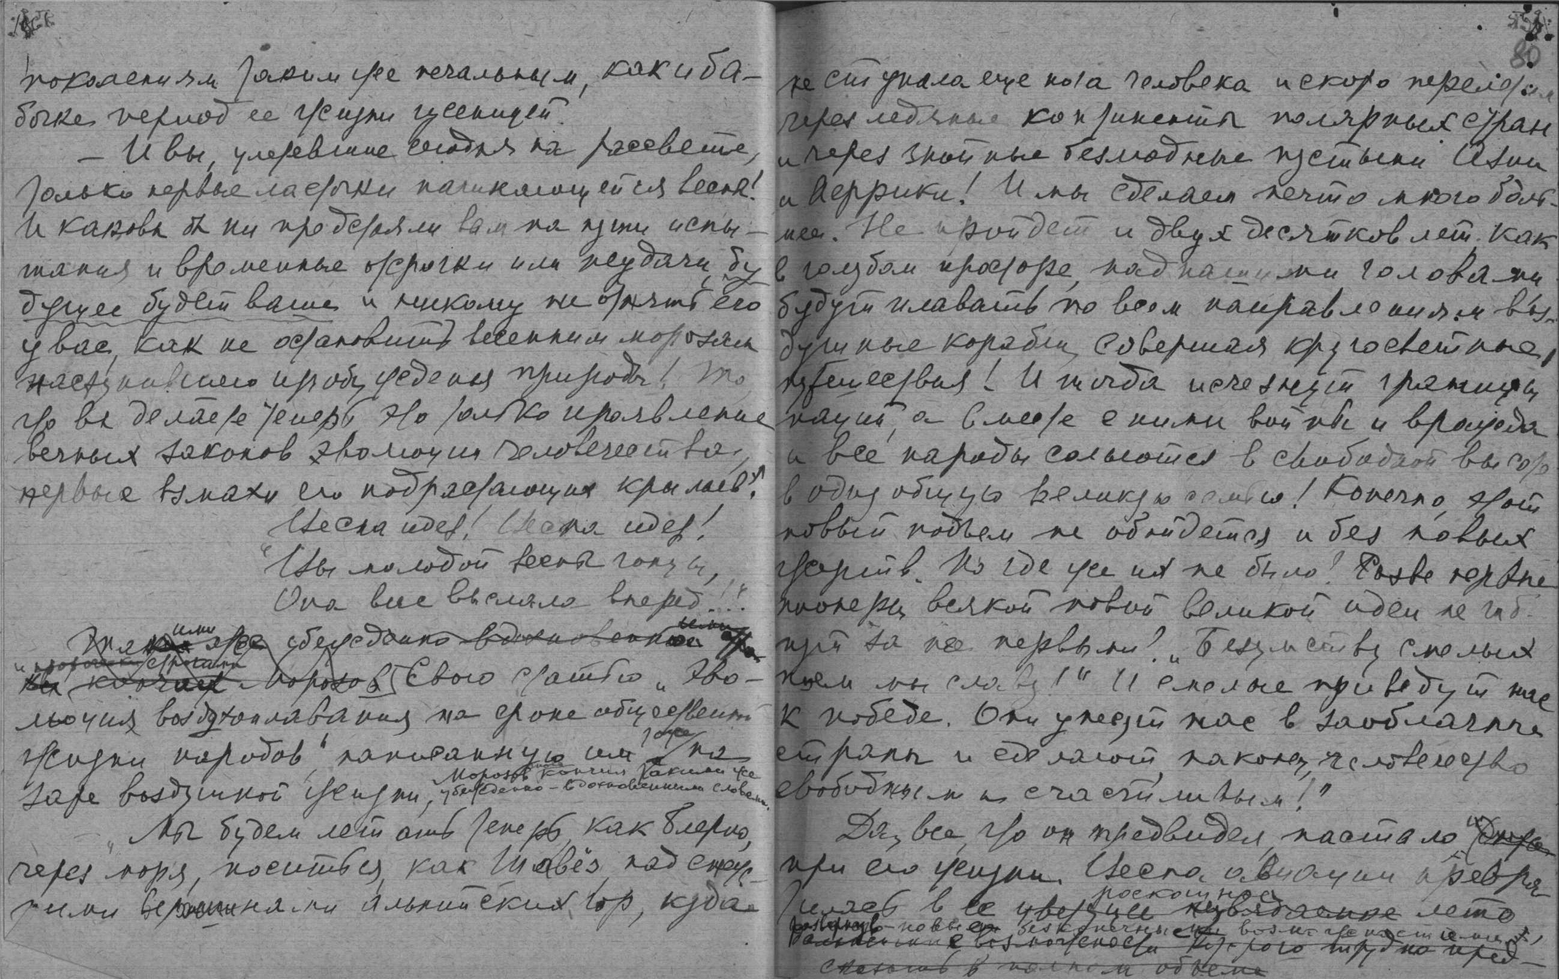 поколениям таким же печальным, как и ба-
бочке период ее жизни гусеницей.
— И вы, улетевшие сегодня на рассвете,
только первые ласточки начинающейся весны!
И каковы б ни предстояли вам на пути испы-
тания и временные отсрочки или неудачи, бу
дущее будет ваше и никому не отнять его
у вас, как не остановить весенним морозам
наступившего пробуждения природы! То
что вы делаете теперь это только проявление
вечных законов эволюции человечества,
первые взмахи его подрастающих крыльев!
Весна идет! Весна идет!
"Мы молодой весны гонцы,
Она нас выслала вперед!.."
убежденно
Морозов Свою статью „Эво-
люция воздухоплавания на фоне общественной
жизни народов" написанную им тоже на
заре воздушной жизни, Морозов кончил такими же
убежденно-вдохновенными словами.
— „Мы будем летать теперь, как Блерио,
через моря, носиться, как Шавёз, над снеж-
ными вершинами альпийских гор, куда
80
не ступала еще нога человека и скоро перелетим
через ледяные континенты полярных стран
и через знойные безводные пустыни Азии
и Африки! И мы сделаем нечто много боль-
шее. Не пройдет и двух десятков лет, как
в голубом просторе, над нашими головами
будут плавать по всем направлениям воз-
душные корабли, совершая кругосветные
путешествия! И тогда исчезнут границы
наций, а вместе с ними войны и вражда
и все народы сольются в свободной высоте
в одну общую великую семью! Конечно, этот
новый подъем не обойдется и без новых
жертв. Но где же их не было? Разве первые
пионеры всякой новой великой идеи не гиб-
нут за нее первыми? „Безумству смелых
поем мы славу!" И смелые приведут нас
к победе. Они унесут нас в заоблачные
страны и сделают, наконец, человечество
свободным и счастливым!"
Да, все, что он предвидел, настало
при его жизни. Весна авиации превра-
тилась в ее цветущее роскошное лето
новыми бесконечными возможностями,
возможности которого трудно пред-
в полном объеме